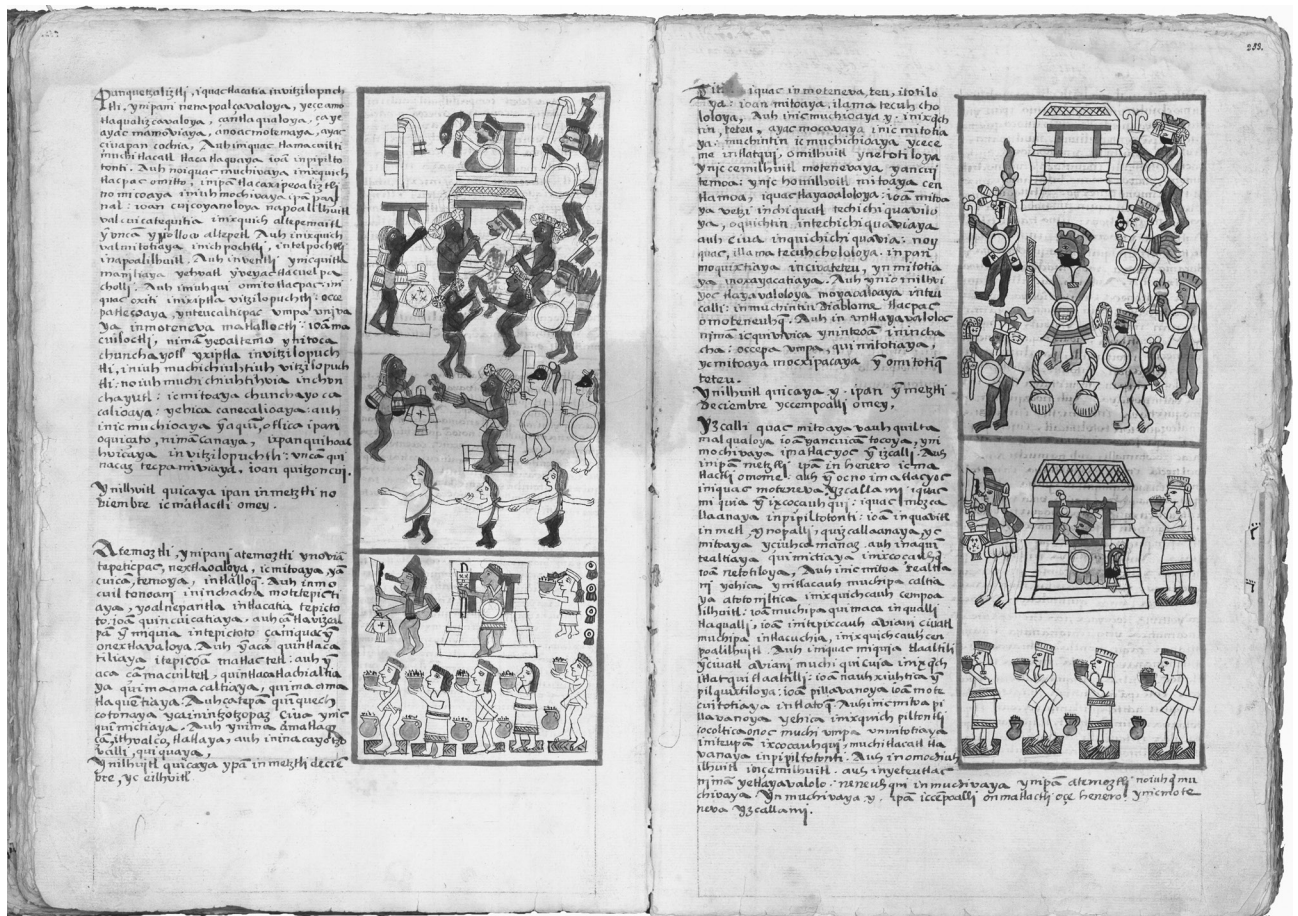 Panquetzaliztli, iquac tlacatia invitzilopuch
tli. ynipani nenapoalçavaloya, yece amo
tlaqualizçavaloya, çantlaqualoya, ça ye
ayac mamoviaya, anoac motemaya, ayac
civapan cochia, Auh iniquac tlamacuilti
muchi tlacatl tlacatlaquaya ioā inpipilto
tonti. Auh noiquac muchivaya inixquich
tlacpac omitto, inipā tlacaxipeoaliztli
no micoaya iniuh mochivaya ipā pas
nal: ioan cuicoyanoloya napoallilhuitl
valcuicatequitia inixquich altepemaitl
ȳ onca ȳ yolloco altepetl Auh inixquich
valmitotiaya inichpochtli, intelpochtli
inapoalilhuitl. Auh inventli ynicquitla
manjliaya yehoatl ȳ veyac tlacuelpa
cholli. Auh iniuhqui omitotlacpac: ini
quac oxiti inixipila vitzilopuchtli: occe
patlecoaya, ynteucalticpac umpa valva
ya inmoteneva matlalloctli: ioā ma
cuiloctli, nimā yeoaltemo yn itoca
chunchayotl yxiptla in vitzilopuch
tli, iniuh muchichiuhtiuh vitzilopuch
tli: no iuh muchichiuhtihvia inchon
chayutl: ic mitoaya chunchayo ca
calioaya: yehica canecalioaya: auh
inic muchioaya ȳ aquī, otlica ipan
oquicato, nimā canaya, ixpanquihoal
hvicaya in vitzilopuchtli: vncā qui
nacaz tecpamiviaya, ioan quitzoncui.
ynilhuitl quicaya ipan in metztli no
viembre ic matlactli omey.
Atemoztli, ynipani atemoztli ynoviā
tepeticpac, nextlaoaloya, ic mitoaya, yā
cuicā, temoya, intlalloq̄. Auh inmo
cuiltonoani ininchacha motetepicti
aya, yoalnepantla intlacatia tepicto
to: ioā quincuicatiaya, auh çā tlavizcal
pā ȳ miquia intepictoto çaniquac ȳ
onextlavaloya. Auh ȳ acā quintlaca
tiliaya itepicoā matlactetl: auh ȳ
aca çā macuiltetl, quintlacatlachialtia
ya quimaamacaltiaya, quimaama
tlaquetiaya. Auh çatepā quiquech
cotonaya
quimictiaya. Auh ynimaamatlaq̄
çā ithvalco, tlatlaya, auh ininacayotzo
valli, quiquaya,
ynilhuitl quicaya ypā in metztli decie
bre, yc eilhuitl
283.
Tititl iquac in moteneva, teu, itotilo
ya: ioan mitoaya, ilama tecuhcho
loloya, Auh inic muchioaya y: inixq̄ch
tin, teteu, ayac mocavaya inic mitotia
ya: muchintin ic muchichioaya ycece
me intlatqui, omilhuitl ynetotiloya
ynic cemilhuitl motenevaya yancui
temoa: ynic homilhuitl mitoaya cen
tlamoa, iquac tlayaoaloloya: ioā mitoa
ya vetzi inchiquatl techichiquavilo
ya, oquichtin intechichiquaviaya
auh ciua inquichichiquavia: noy
quac, ilama tecuhchololoya. in pan
moquixtiaya incivateteu, yn mitotia
ya inoxayacatiaya. Auh ynic milhvi
yoc tlayavaloloya moyaoaloaya inteu
calli: inmuchintin Diablome, tlacpac
omoteneuhq̄. Auh in vntlayavaloloc
nimā ic quivalvica yninteoā ininca
cha: occepa umpa, quimitotiaya,
yemitoaya mocxipacaya ȳ omitotiq̄
teteu.
ynilhuitl quicaya .y. ipan ȳ metztli
deciembre yc cempoalli omey,
yzcalli quac mitoaya vauhquilta
malqualoya ioā yancuicān tocoya, yni
mochivaya ipā tlacyoc ȳ izcalli. Auh
inipā metztli ipā in henero ic ma
tlactli omome. auh ȳ oc no imatlacyoc
iniquac moteneva. yzcalla mi iquac
miquia ȳ ixcocauhqui: iquac imizca
llaanaya inpipiltotonti: ioā inquavitl
in metl, ynopalli, quizcallaanaya, yc
mitoaya yciuhca manaz. auh inaquin
tealtiaya quimictiaya imixcocauhq̄
ioā netotiloya, Auh inic mitoa tealtla
ni yehica ynitlacauh muchipa caltia
ya atotoniltica inixquichcauh cempoa
lilhuitl: ioā muchipa quimaca inqualli
tlaqualli, ioā initepixcauh aviani ciuatl
muchipa intlacuchia, inixquichcauh cen
poalilhuitl. Auh iniquac miquia tlaaltilli
yciuatl aviani muchi quicuia inixq̄ch
itlatqui tlaaltilli: ioā nauhxiuhtica ȳ
pilquixtiloya: ioā pillavanoya ioā mote
cuitotiaya intlatoq̄. Auh inic mitoa pi
llavanoya yehica inixquich piltontli
cocoltica onoc muchi umpa vnmitotiaya
initeupā ixcocauhqui, muchi tlacatl tla
vanaya inpipiltotonti. Auh in omochiuh
ilhuitl ioncemilhuitl. auh in yeteutlac
nimā yetlayavalolo. neneuhqui inmuchivaya ynipā atemoztli no iuhq̄ mu
chivaya. yn muchivaya y. ipā ic cēpoalli onmatlactli oçe henero. ynic mote
neva yzcallami.